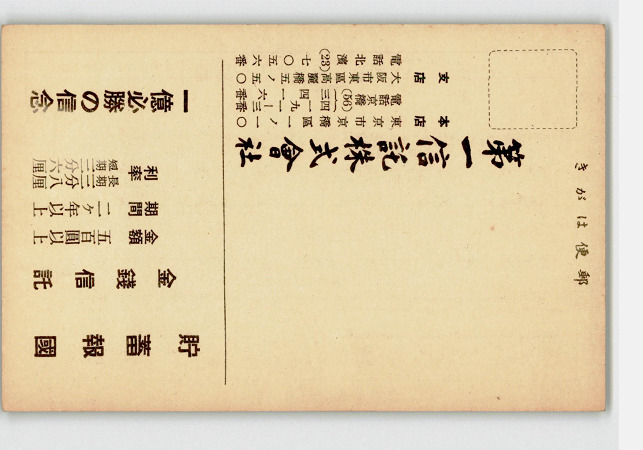 郵便はがき
第一信託株式會社
本店
東京市京橋區
電話京橋(56)
支店
大阪市東區高麗橋五ノ五〇
電話北濱(23)七〇五六
貯蓄報國
金錢信託
金額 五百圓以上
期間 二ヶ年以上
利率
長期 三分八厘
短期 三分六厘
一億必勝の信念